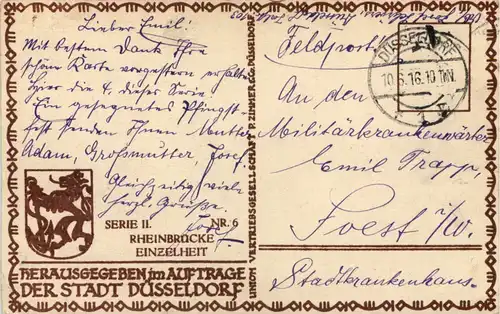 Lieber Emil!
Mit bestem Dank Ihre
schöne Karte vorgestern erhalten
Hier die 4. dieser Serie.
Ein gesegnetes Pfingst-
fest senden Ihnen Mutter
Adam, Großmutter, Josef
Gleichzeitig viele
herzl. Grüße
SERIE II. NR. 6
RHEINBRÜCKE
EINZELHEIT
HERAUSGEGEBEN im AUFTRAGE
DER STADT DÜSSELDORF
UNION VERTRIEBSGESELLSCHAFT
DÜSSELDORF
Feldpost
DÜSSELDORF
10.6.16.10
An den
Militärkrankenwärter
Emil Trapp,
Soest i/W.
Stadtkrankenhaus.